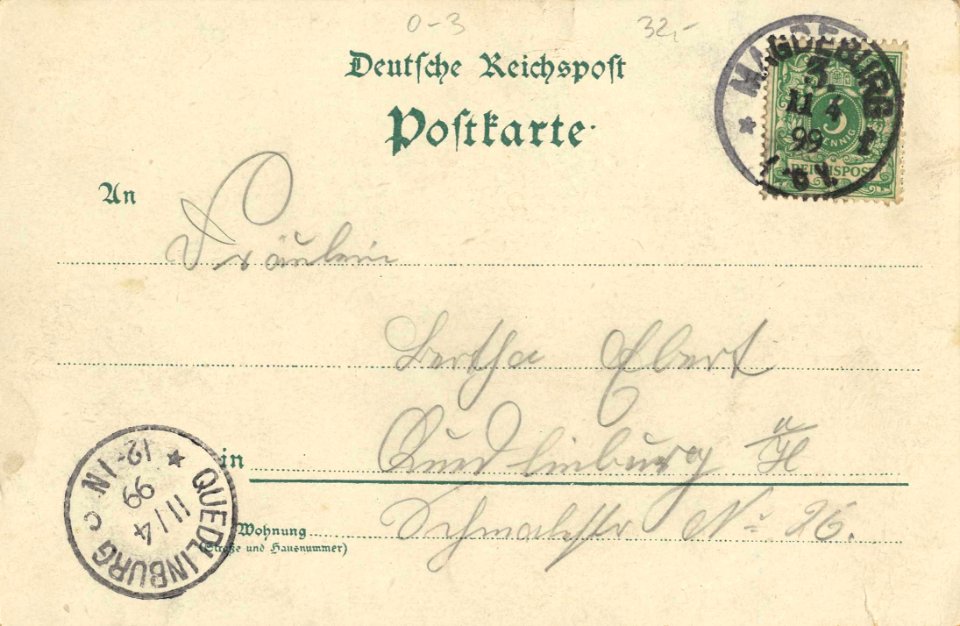 0-3 32,-
Deutsche Reichspost
Postkarte
MAGDEBURG
3.
11 4
99 1
5
PFENNIG
REICHSPOST
An Fräulein
Bertha Ebert
in Quedlinburg a/H
Wohnung Schmalestr No 26.
(Straße und Hausnummer)
QUEDLINBURG c
11/4
99
12-1N